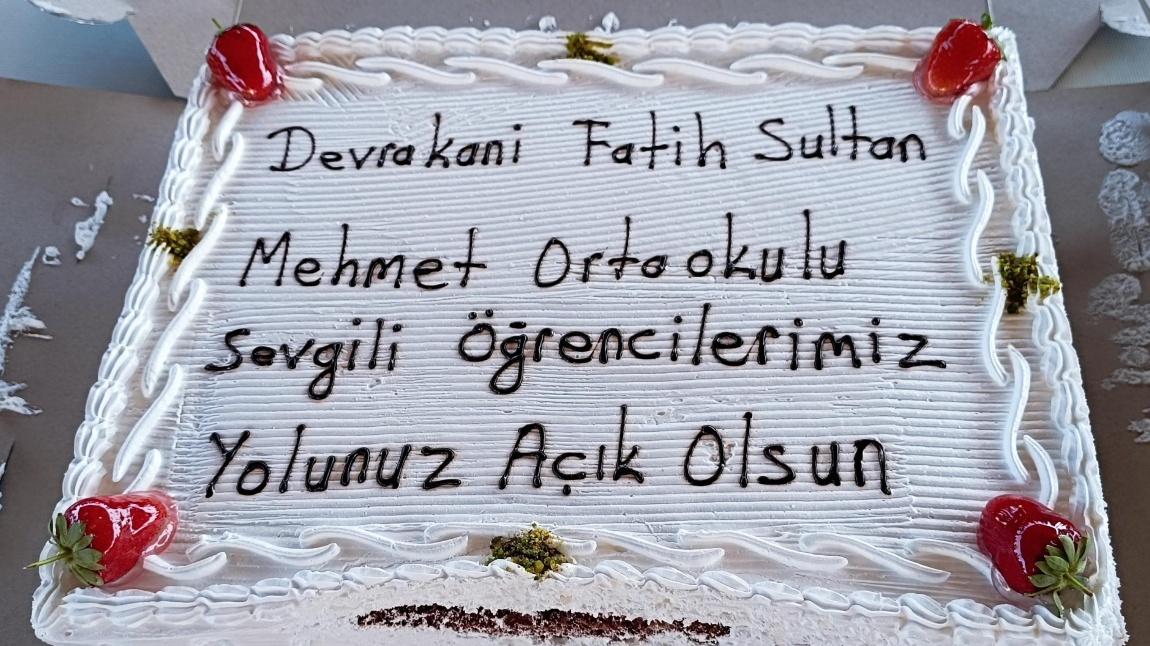 Devrakani Fatih Sultan
Mehmet Ortaokulu
Sevgili Öğrencilerimiz
Yolunuz Açık Olsun